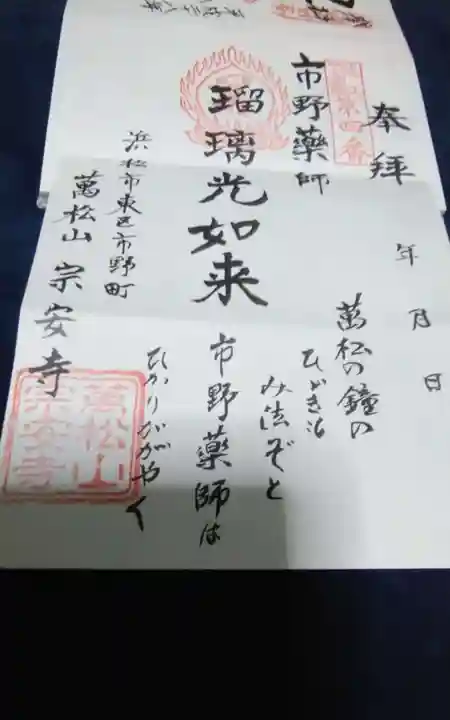 奉拝
年 月 日
第四番
市野薬師
瑠璃光如来
萬松の鐘の
ひゞきも
み法ぞと
市野薬師は
ひかりかがやく
浜松市東区市野町
萬松山 宗安寺
萬松山
宗安寺